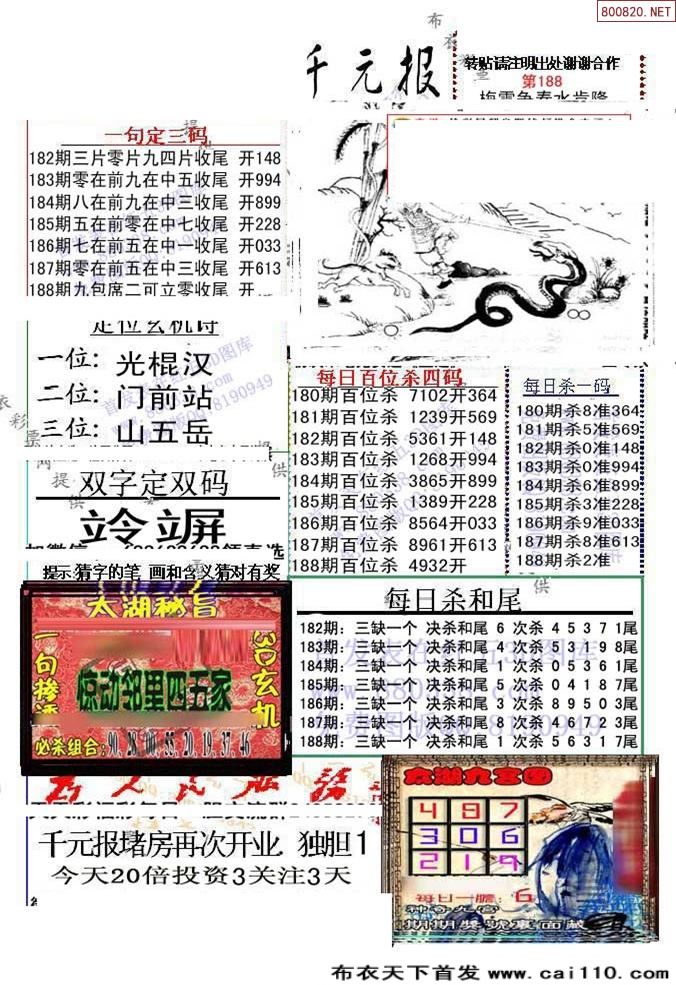 800820.NET
千元报
转贴请注明出处谢谢合作
第188
一句定三码
182期三片零片九四片收尾 开148
183期零在前九在中五收尾 开994
184期八在前九在中三收尾 开899
185期五在前零在中七收尾 开228
186期七在前五在中一收尾 开033
187期零在前五在中三收尾 开613
188期九包席二可立零收尾 开
定位玄机诗
一位: 光棍汉
二位: 门前站
三位: 山五岳
每日百位杀四码
180期百位杀 7102开364
181期百位杀 1239开569
182期百位杀 5361开148
183期百位杀 1268开994
184期百位杀 3865开899
185期百位杀 1389开228
186期百位杀 8564开033
187期百位杀 8961开613
188期百位杀 4932开
每日杀一码
180期杀8准364
181期杀5准569
182期杀0准148
183期杀0准994
184期杀6准899
185期杀3准228
186期杀9准033
187期杀8准613
188期杀2准
双字定双码
提示:猜字的笔 画和含义猜对有奖
太湖秘旨
一句
3D玄机
惊动邻里四五家
必杀组合:90.28.00.55.20.19.37.46
每日杀和尾
182期: 三缺一个 决杀和尾 6 次杀 4 5 3 7 1尾
183期: 三缺一个 决杀和尾 4 次杀 5 3 7 9 8尾
184期: 三缺一个 决杀和尾 1 次杀 0 5 3 6 1尾
185期: 三缺一个 决杀和尾 5 次杀 0 4 1 8 7尾
186期: 三缺一个 决杀和尾 3 次杀 8 9 5 0 3尾
187期: 三缺一个 决杀和尾 8 次杀 4 6 1 2 3尾
188期: 三缺一个 决杀和尾 1 次杀 5 6 3 1 7尾
千元报堵房再次开业 独胆1
今天20倍投资3关注3天
太湖九宫图
4 8 7
3 0 6
2 1 9
每日一胆: 6
期期奖号裏面藏
布衣天下首发 www.cai110.com